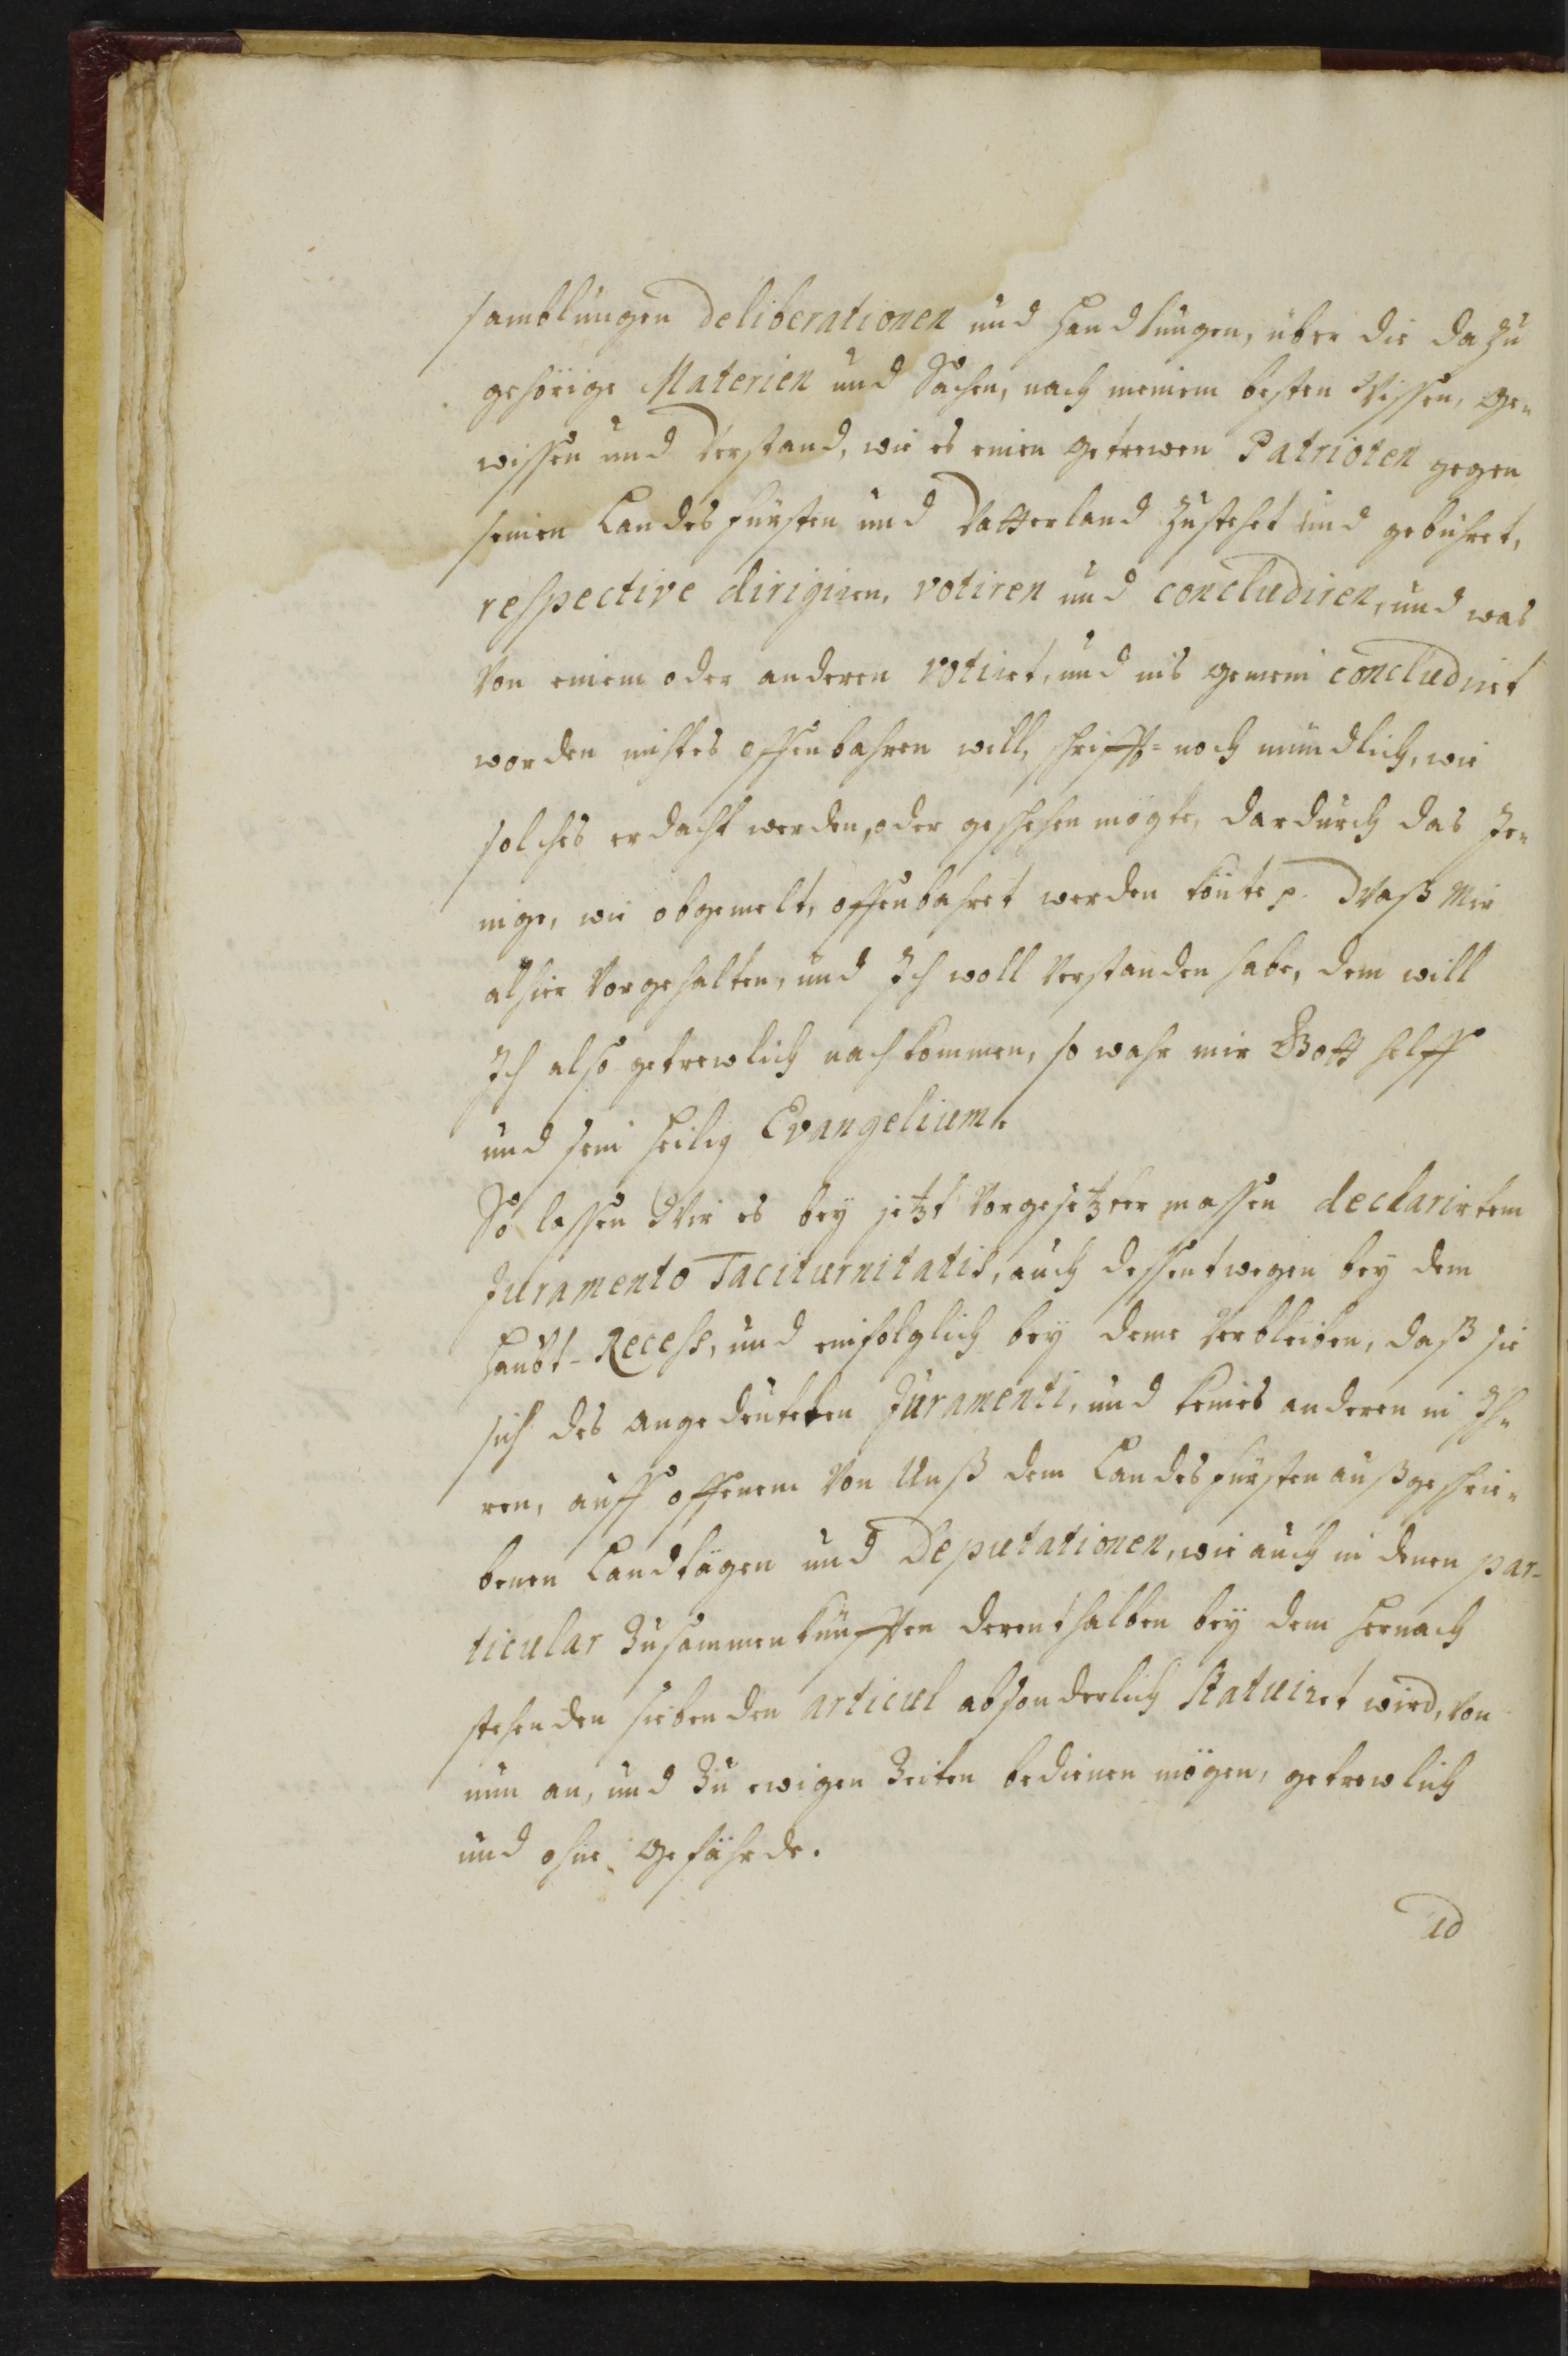 samblungen Deliberationen und Handlungen, über die dazu
gehörige Materien und Sachen, nach meinem besten Wissen, Ge¬
wissen und Verstand, wie es einen getrewen Patrioten gegen
seinen Landesfürsten und Vatterland zustehet und gebühret,
respective dirigiren, votiren und concludiren, und was
von einem oder anderen votiret, und ins gemein concludiret
worden nichtes offenbahren will, schrifft- noch mündlich, wie
solches erdacht werden, oder geschehen mögte, dardurch das Je¬
nige, wie obgemelt, offenbahret werden könte p. Waß Mir
alhier vorgehalten, und Ich woll verstanden habe, dem will
Ich also getrewlich nachkommen, so wahr mir Gott helff
und sein heilig Evangelium.
So lassen Wir es bey jetzt vorgesetzter massen declarirtem
Juramento Taciturnitatis, auch dessentwegen bey dem
Haubt-Recess, und einfolglich bey deme verbleiben, daß sie
sich des angedeuteten Juramenti, und keines anderen in Ih¬
ren, auff offenem von Unß dem Landesfürsten außgeschrie¬
benen Landtägen und Deputationen, wie auch in denen par-
ticular Zusammenkünfften derenthalben bey dem hernach
stehenden siebenden articul absonderlich statuiret wird, von
nun an, und zu ewigen Zeiten bedienen mögen, getrewlich
und ohne Gefährde.
ad